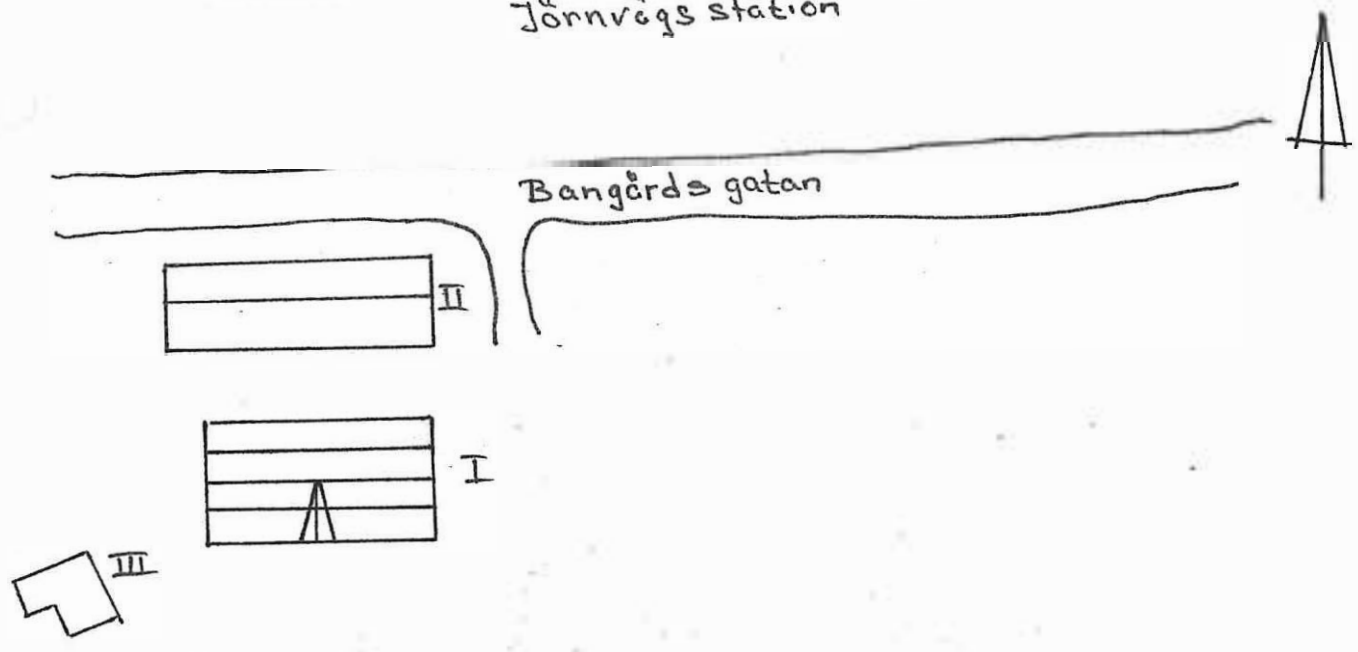 Järnvägs station
Bangårds gatan
II
I
III